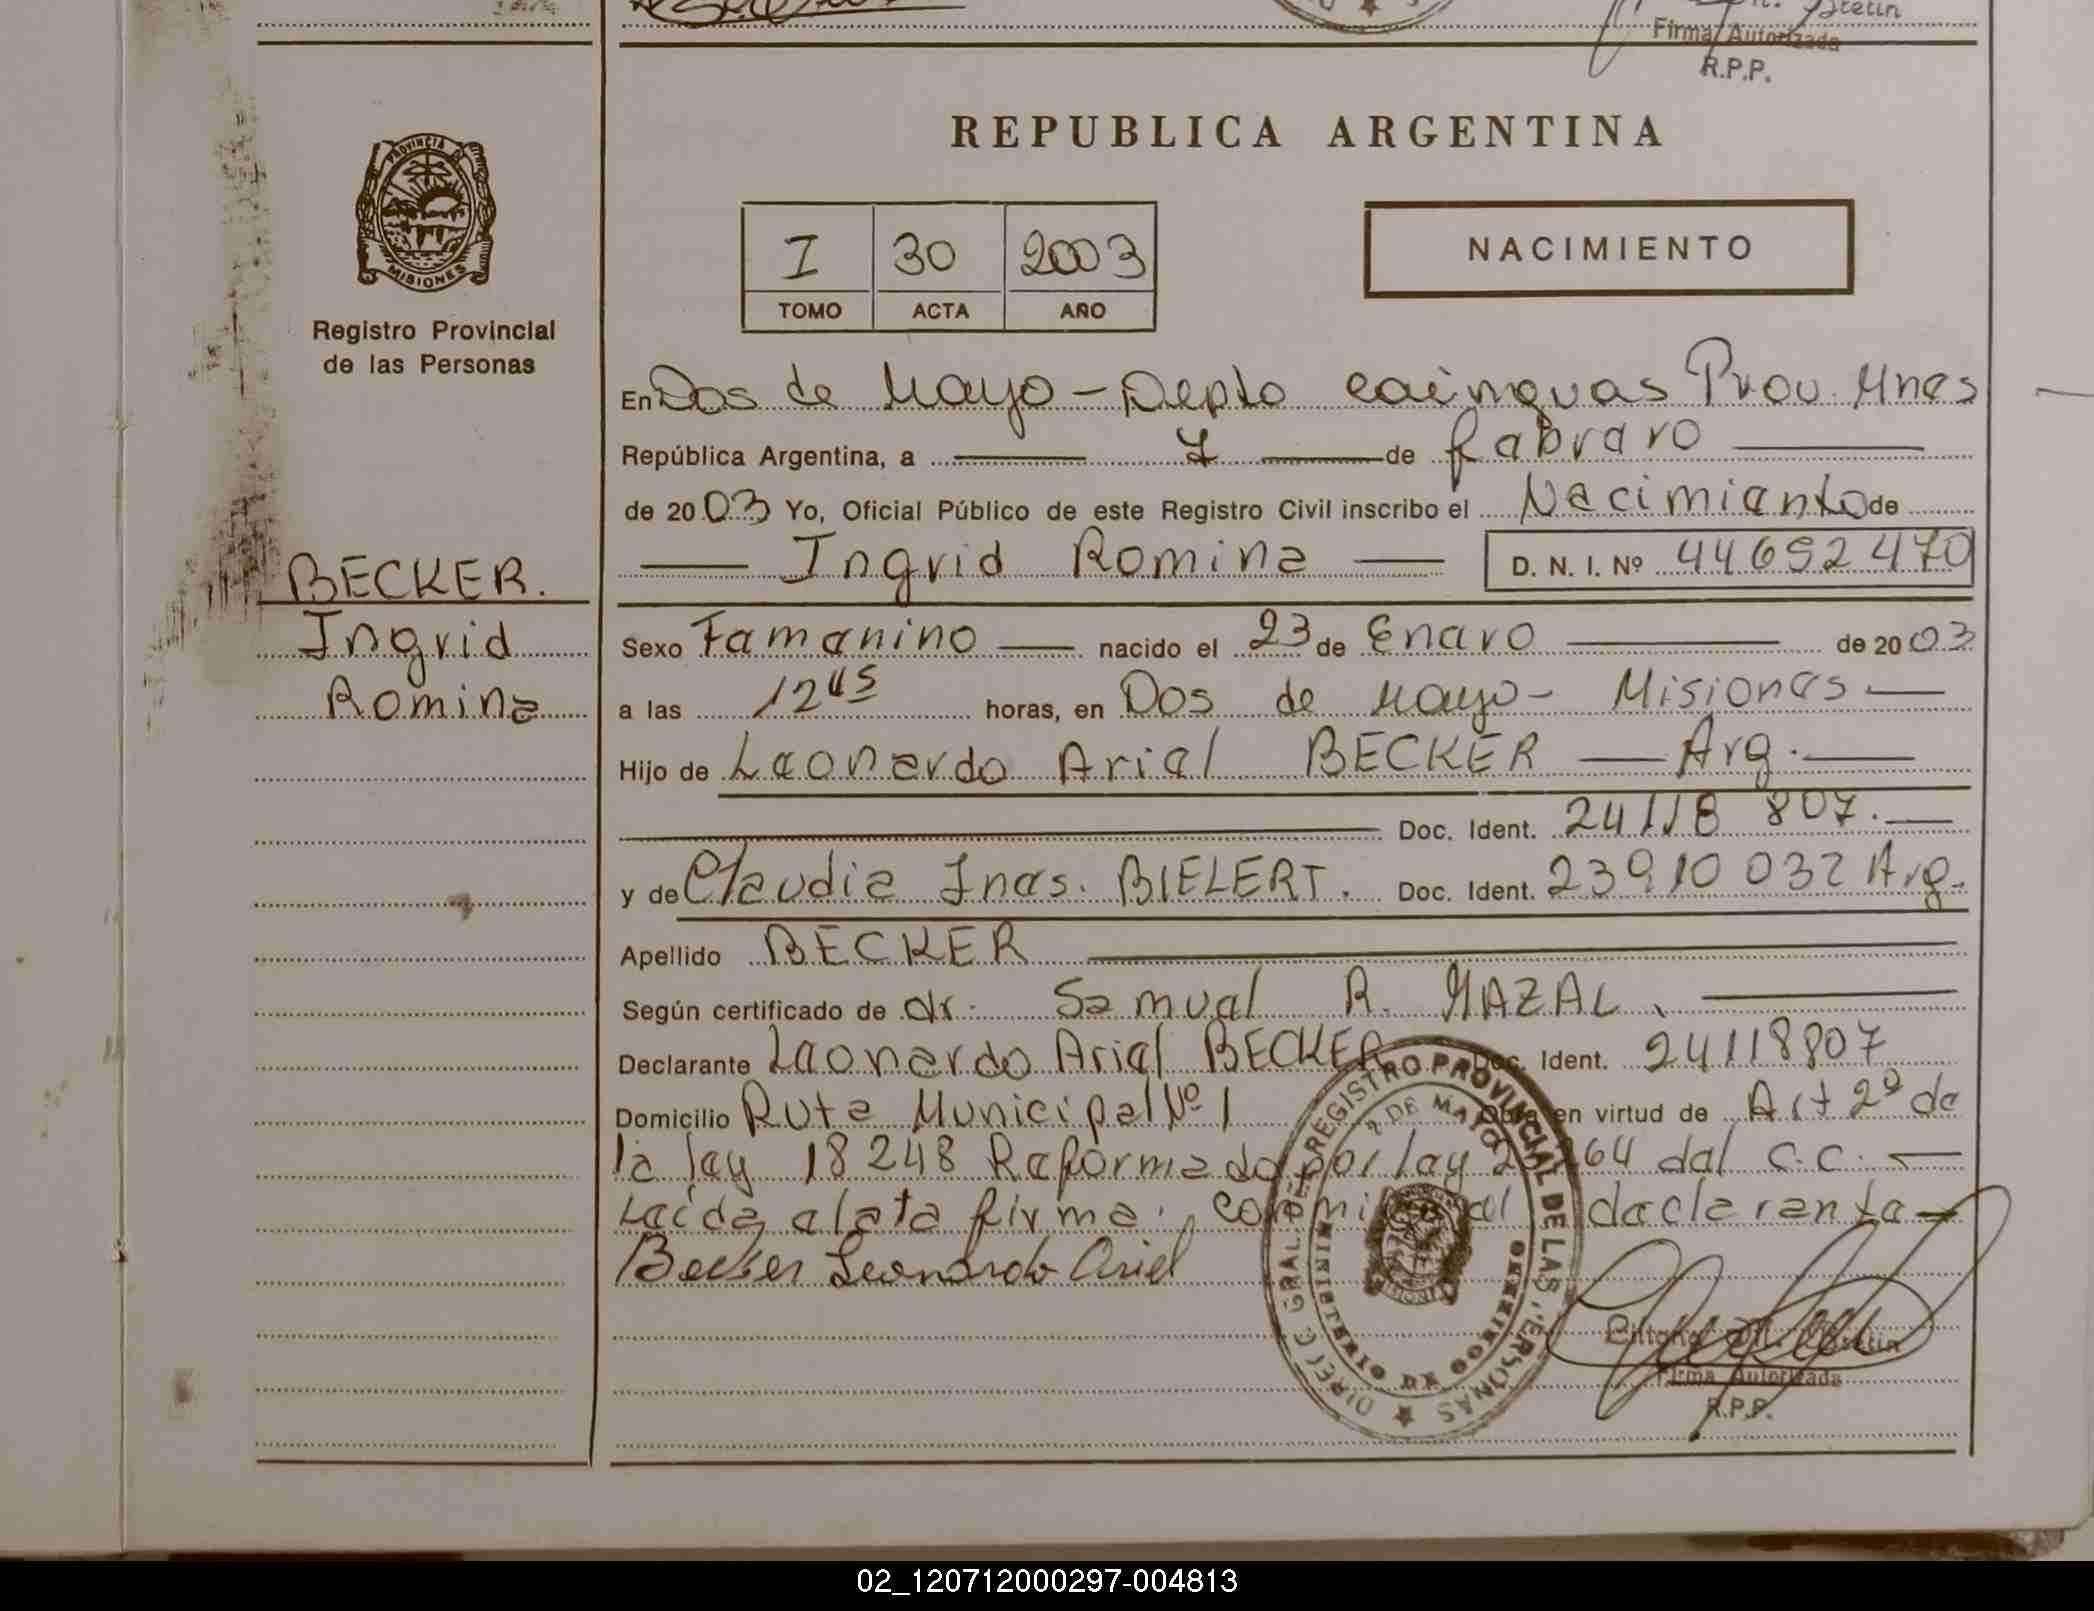 Firma Autorizada
R.P.P.
REPUBLICA ARGENTINA
PROVINCIA
MISIONES
Registro Provincial
de las Personas
I 30 2003
TOMO ACTA AÑO
NACIMIENTO
En Dos de Mayo - Depto Cainguas Prov. Mnes
República Argentina, a 7 de febrero
de 2003 Yo, Oficial Público de este Registro Civil inscribo el Nacimiento de
Ingrid Romina D. N. I. Nº 44692470
BECKER.
Ingrid
Romina
Sexo Femenino nacido el 23 de Enero de 2003
a las 12 45 horas, en Dos de Mayo - Misiones
Hijo de Leonardo Ariel BECKER Arg.
Doc. Ident. 24118 807.
y de Claudia Ines. BIELERT. Doc. Ident. 23910 032 Arg.
Apellido BECKER
Según certificado de dr. Samuel R. MAZAL.
Declarante Leonardo Ariel BECKER Doc. Ident. 24118807
Domicilio Ruta Municipal Nº 1 Obra en virtud de Art 2º de
la ley 18248 Reformado por ley 264 del C.C.
Leida elata firma conmigo el declarante
Becker Leonardo Ariel
DIREC. GRAL. DEL REGISTRO PROVINCIAL DE LAS PERSONAS
2 DE MAYO
Firma Autorizada
R.P.P.
02_120712000297-004813